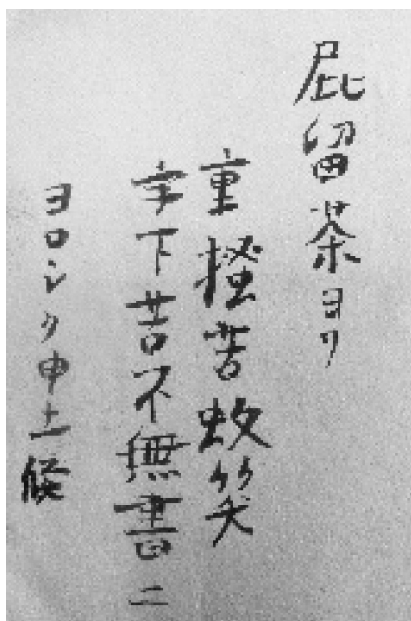 屁留茶ヨリ
重極苦蚊笑
宇下苦不無書ニ
ヨロシク申上候